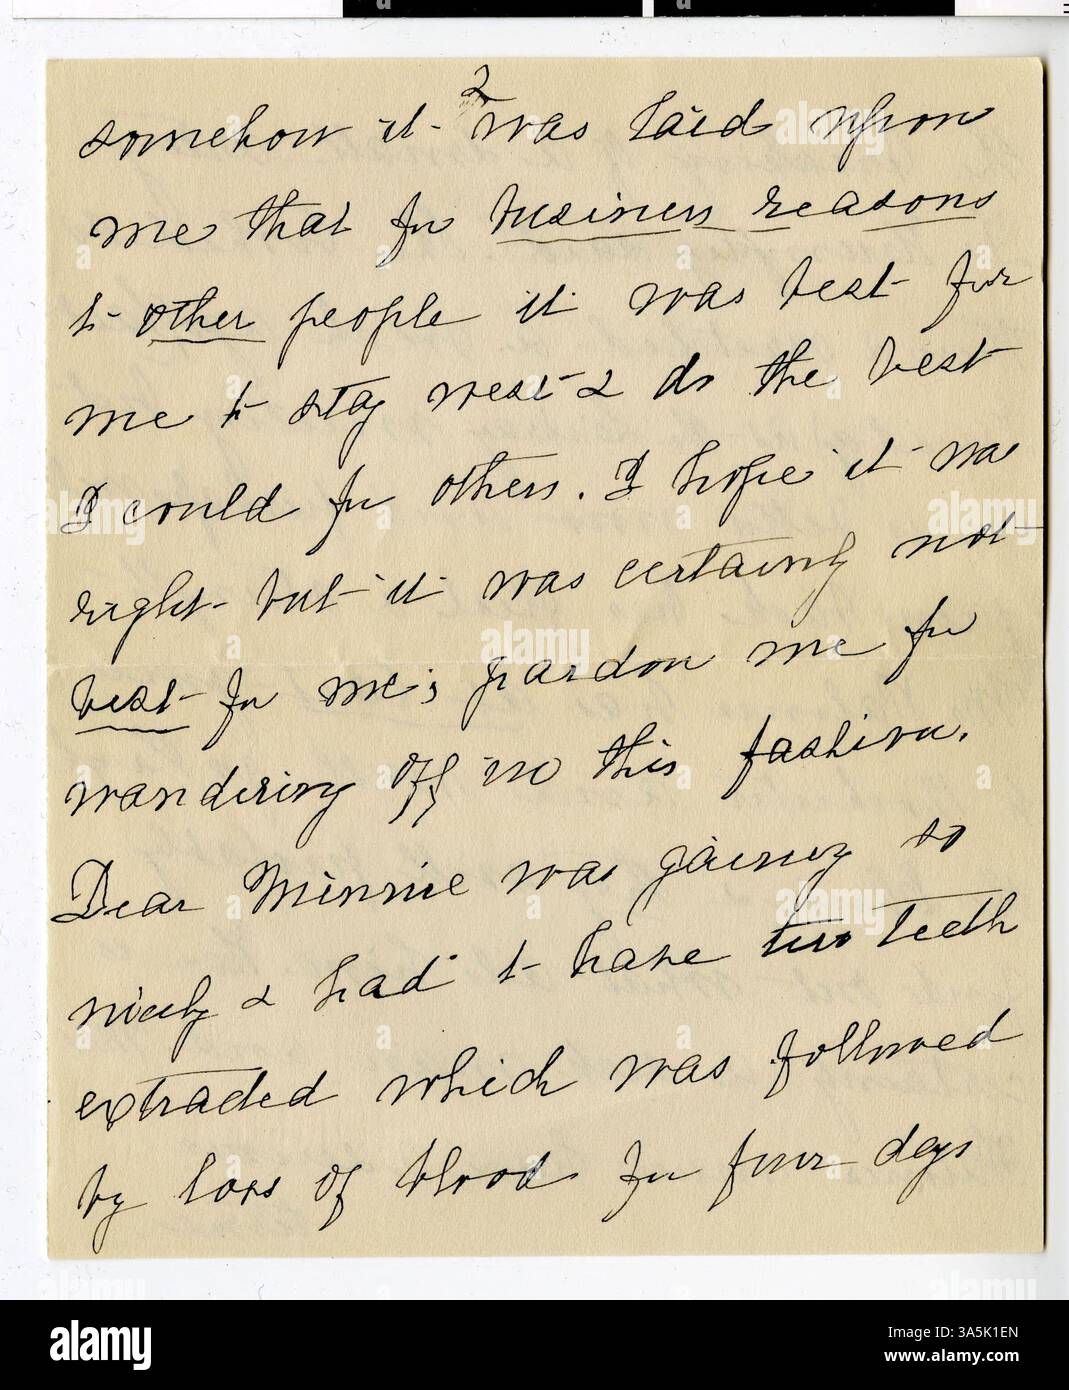 2
somehow it was laid upon
me that for business reasons
to other people it was best for
me to stay west & do the best
I could for others. I hope it was
right but it was certainly not
best for me; pardon me for
wandering off in this fashion.
Dear Minnie was gaining so
nicely & had to have two teeth
extracted which was followed
by loss of blood for four days
alamy
Image ID: 3A5K1EN
www.alamy.com